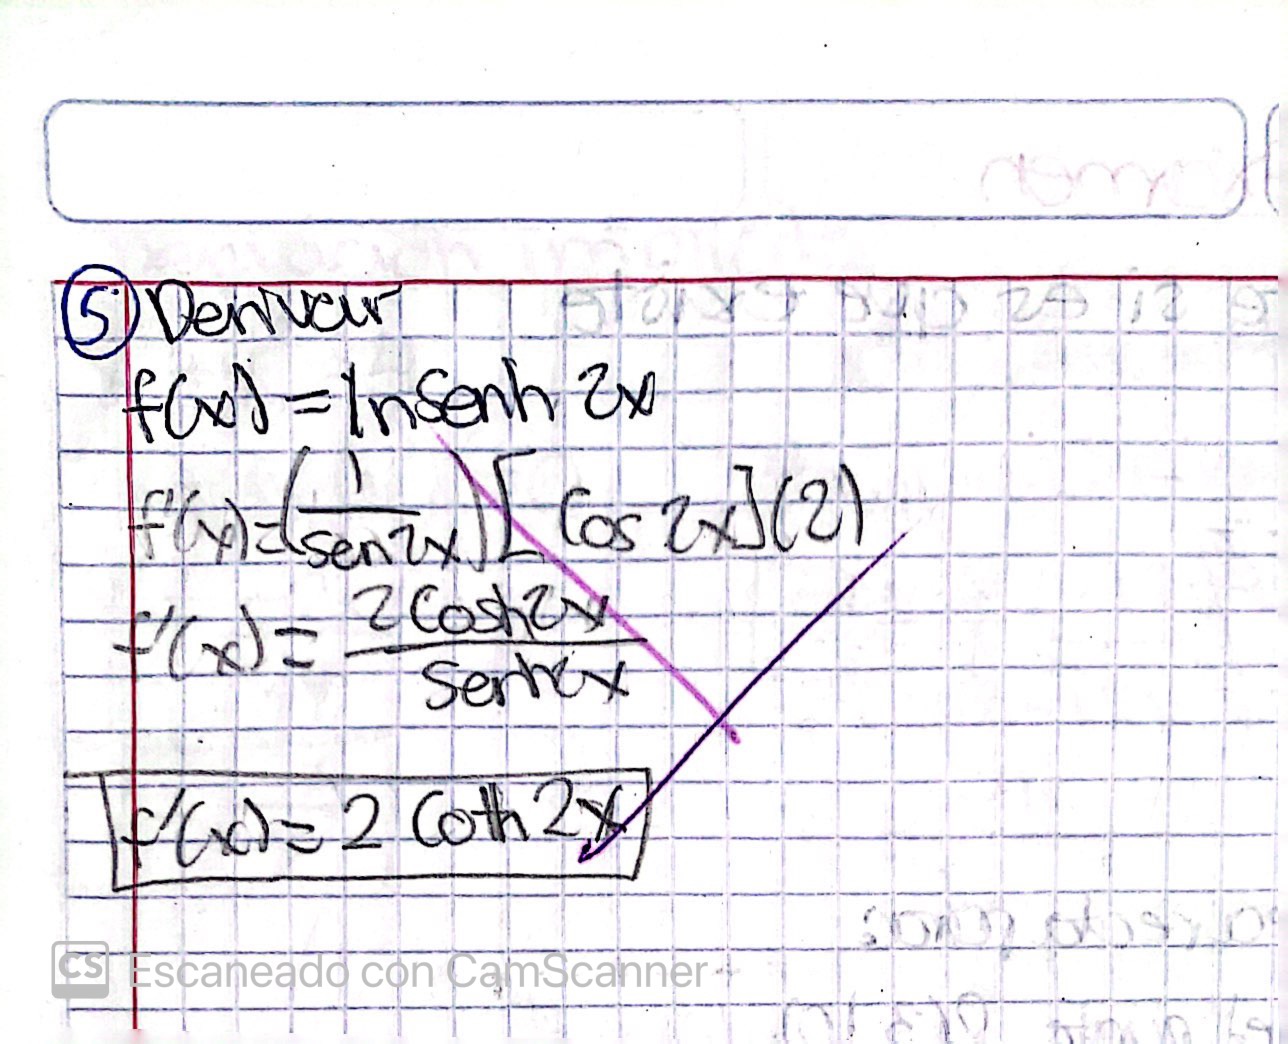 5 Derivar
f(x) = ln Senh 2x
f'(x) = (1/sen 2x) [Cos 2x](2)
f'(x) = 2 Cosh 2x / Senh 2x
f'(x) = 2 Coth 2x
CS Escaneado con CamScanner